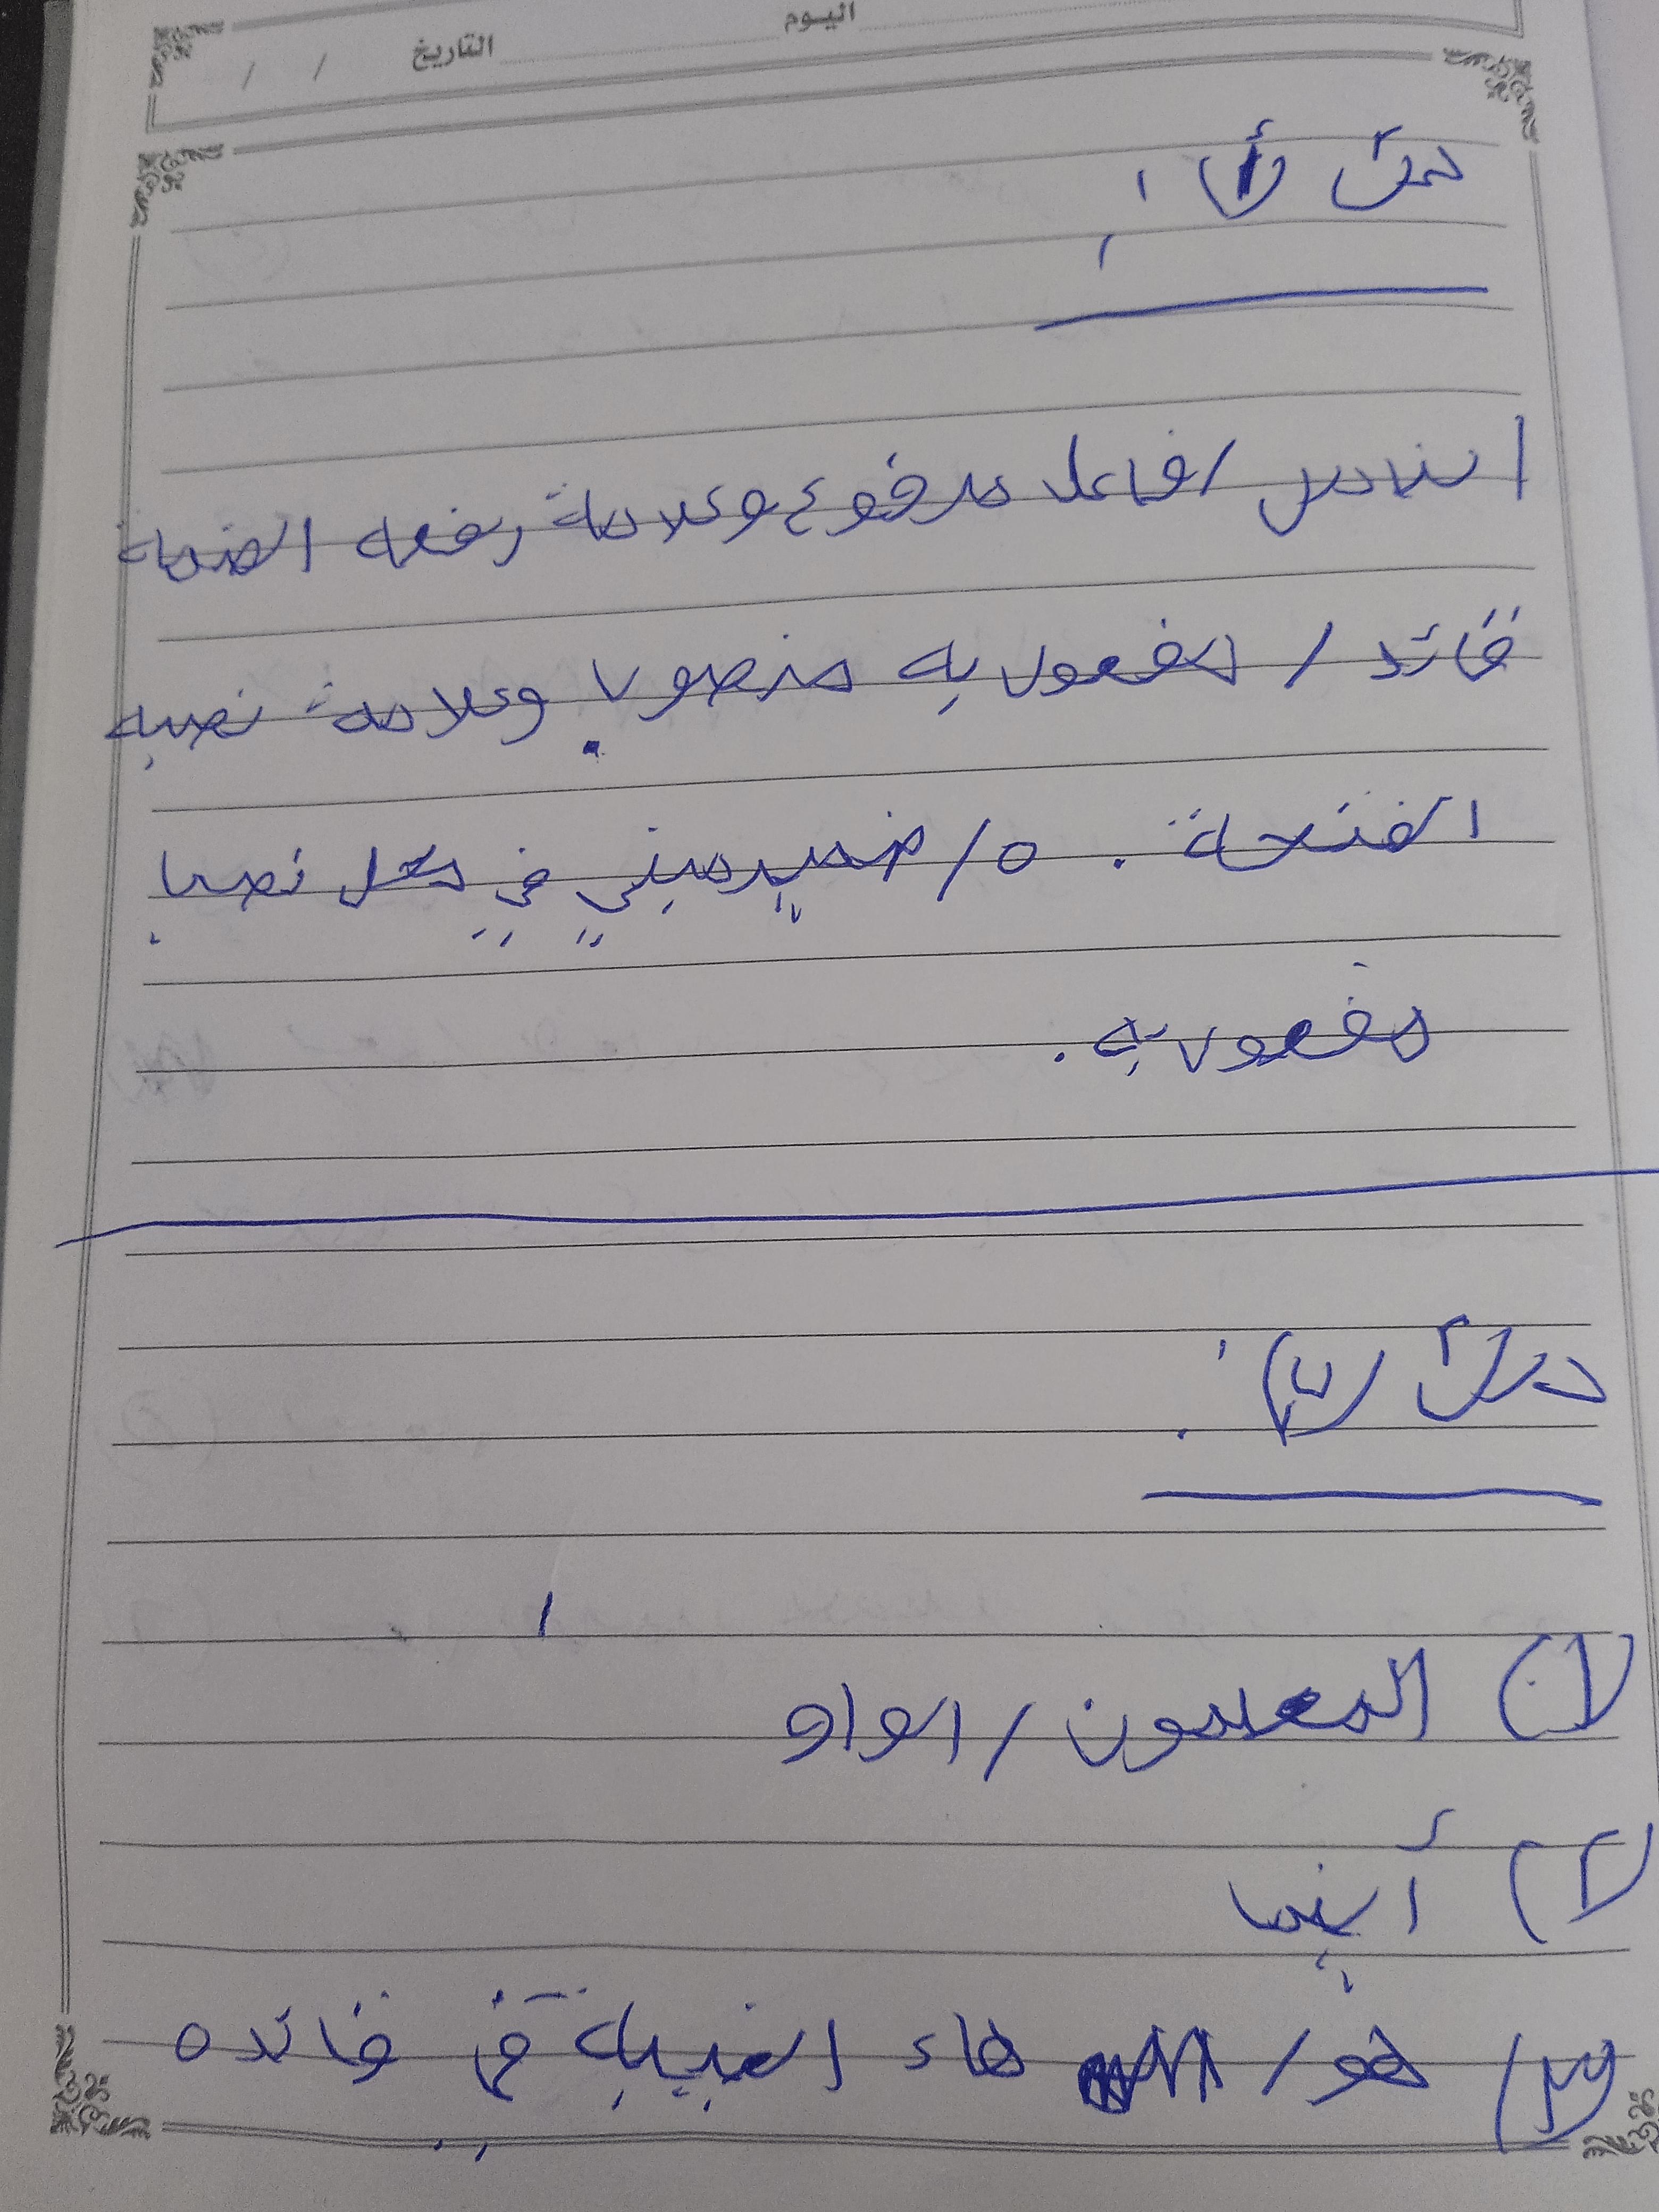 اليوم
التاريخ / /
س٢ (أ) :
الناس / فاعل مرفوع وعلامة رفعه الضمة
قائد / مفعول به منصوب وعلامة نصبه
الفتحة . ه / ضمير مبني في محل نصب
مفعول به .
س٢ (ب) :
(١) المعلمون / الواو
(٢) أينما
(٣) هو / هاء الغيبة في قائده